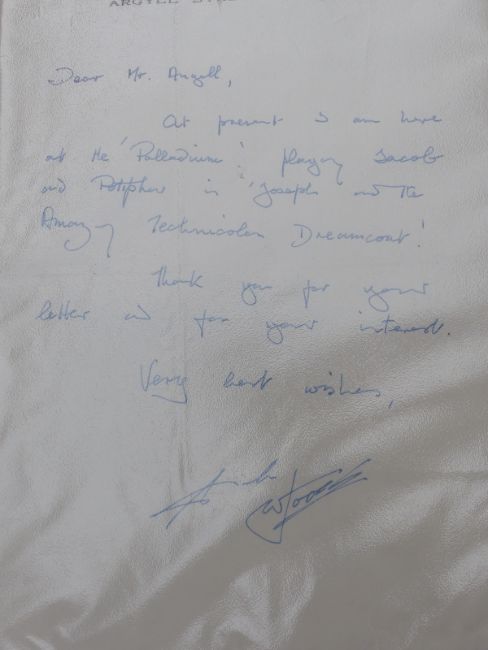 ARGYLL
Dear Mr. Angell,
At present I am here
at the 'Palladium': playing Jacob
and Potiphar in 'Joseph and the
Amazing Technicolor Dreamcoat!
Thank you for your
letter and for your interest.
Very best wishes,